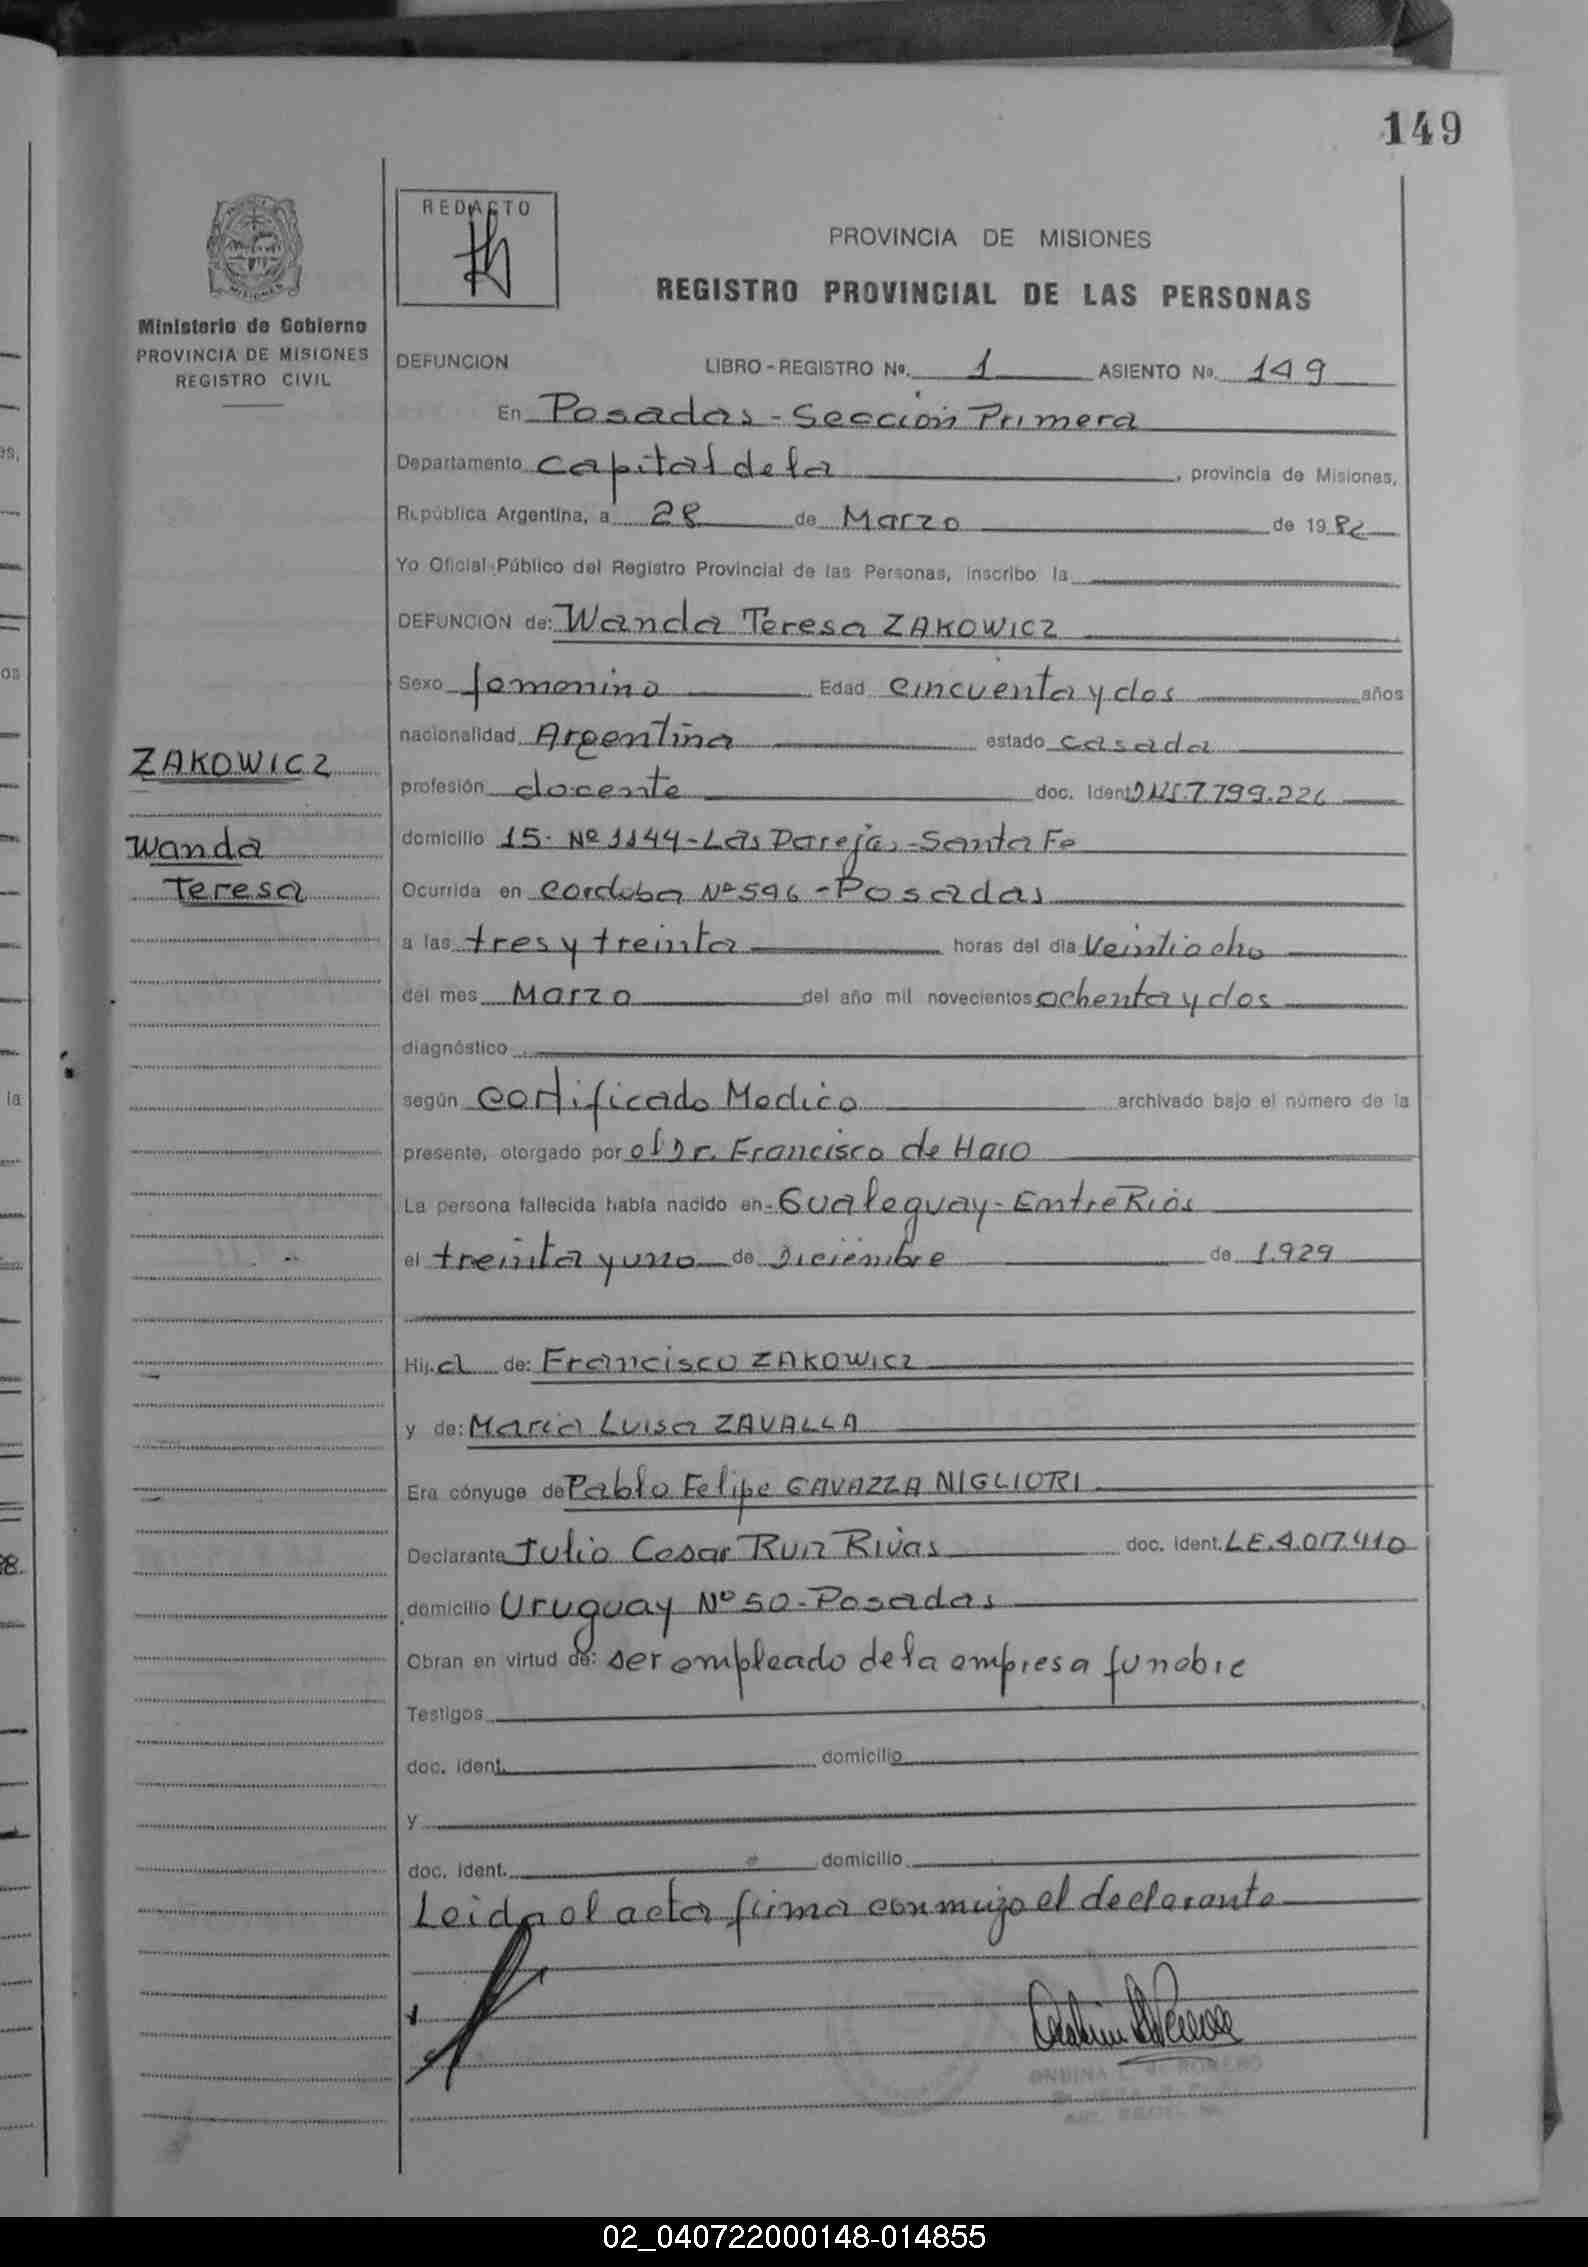 149
REDACTO
PROVINCIA DE MISIONES
REGISTRO PROVINCIAL DE LAS PERSONAS
Ministerio de Gobierno
PROVINCIA DE MISIONES
REGISTRO CIVIL
DEFUNCION LIBRO-REGISTRO Nº. 1 ASIENTO Nº. 149
En Posadas - Sección Primera
Departamento Capital de la, provincia de Misiones,
República Argentina, a 28 de Marzo de 1982
Yo Oficial Público del Registro Provincial de las Personas, inscribo la
DEFUNCION de: Wanda Teresa ZAKOWICZ
Sexo femenino Edad cincuenta y dos años
nacionalidad Argentina estado casada
profesión docente doc. Ident. 7.799.226
domicilio 15- Nº 1144-Las Parejas-Santa Fe
Ocurrida en Cordoba Nº 596 - Posadas
a las tres y treinta horas del día veintiocho
del mes Marzo del año mil novecientos ochenta y dos
diagnóstico
según Certificado Medico archivado bajo el número de la
presente, otorgado por el Dr. Francisco de Haro
La persona fallecida había nacido en- Gualeguay - Entre Rios
el treinta y uno de Diciembre de 1.929
Hij a de: Francisco ZAKOWICZ
y de: Maria Luisa ZAVALLA
Era cónyuge de Pablo Felipe GAVAZZA NIGLIORI
Declarante Julio Cesar Ruiz Rivas doc. Ident. L.E.4.017.410
domicilio Uruguay Nº 50 - Posadas
Obran en virtud de: ser empleado de la empresa funebre
Testigos
doc. Ident. domicilio
y
doc. Ident. domicilio
Leida el acta firma conmigo el declarante
ZAKOWICZ
Wanda
Teresa
02_040722000148-014855